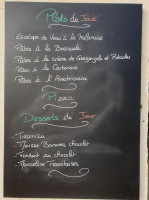 Plats du Jour
Escalope de Veau à la Milanaise
Pâtes à la Bressane
Pâtes à la Crème de Gorgonzola et Pistaches
Pâtes à la Carbonara
Pâtes à l'Amatriciana
Pizza
Desserts du Jour
Tiramisu
Mousse Bananes chocolat
Fondant au chocolat
Panacotta Framboises